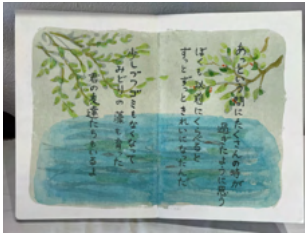 あっという間にたくさんの時が
過ぎたように思う
ぼくも以前にくらべると
ずっとずっときれいになったんだ
少しづつゴミもなくなって
みどりの藻も育った
君の友達たちもいるよ